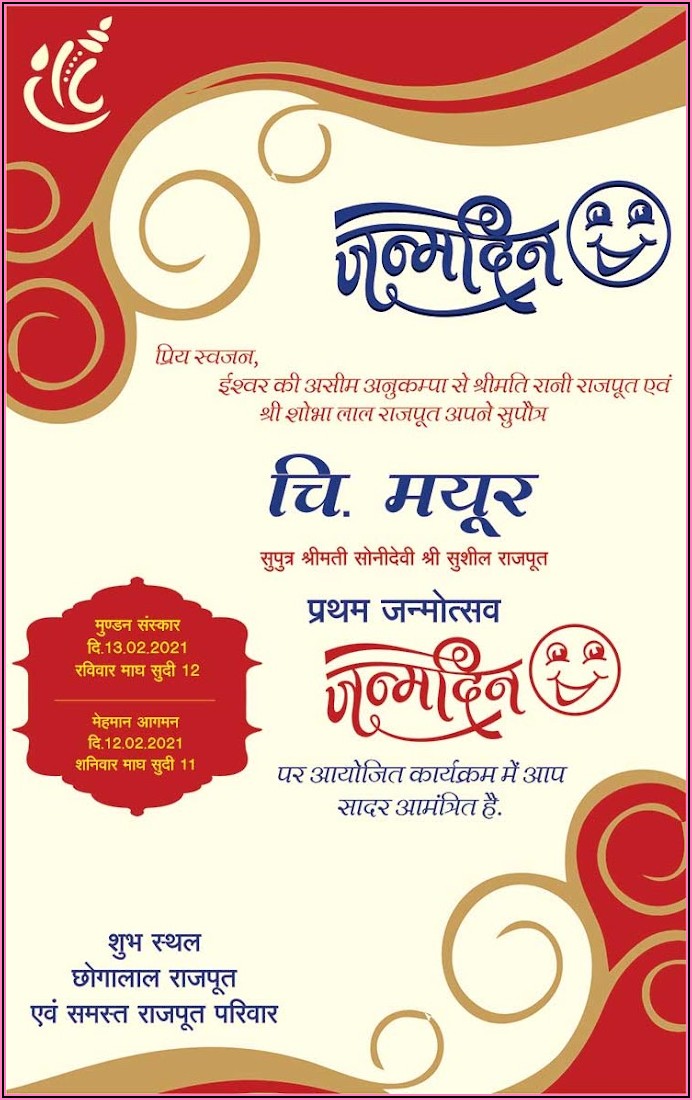 जन्मदिन
प्रिय स्वजन,
ईश्वर की असीम अनुकम्पा से श्रीमति रानी राजपूत एवं
श्री शोभा लाल राजपूत अपने सुपौत्र
चि. मयूर
सुपुत्र श्रीमती सोनीदेवी श्री सुशील राजपूत
प्रथम जन्मोत्सव
जन्मदिन
पर आयोजित कार्यक्रम में आप
सादर आमंत्रित है.
मुण्डन संस्कार
दि.13.02.2021
रविवार माघ सुदी 12
मेहमान आगमन
दि.12.02.2021
शनिवार माघ सुदी 11
शुभ स्थल
छोगालाल राजपूत
एवं समस्त राजपूत परिवार